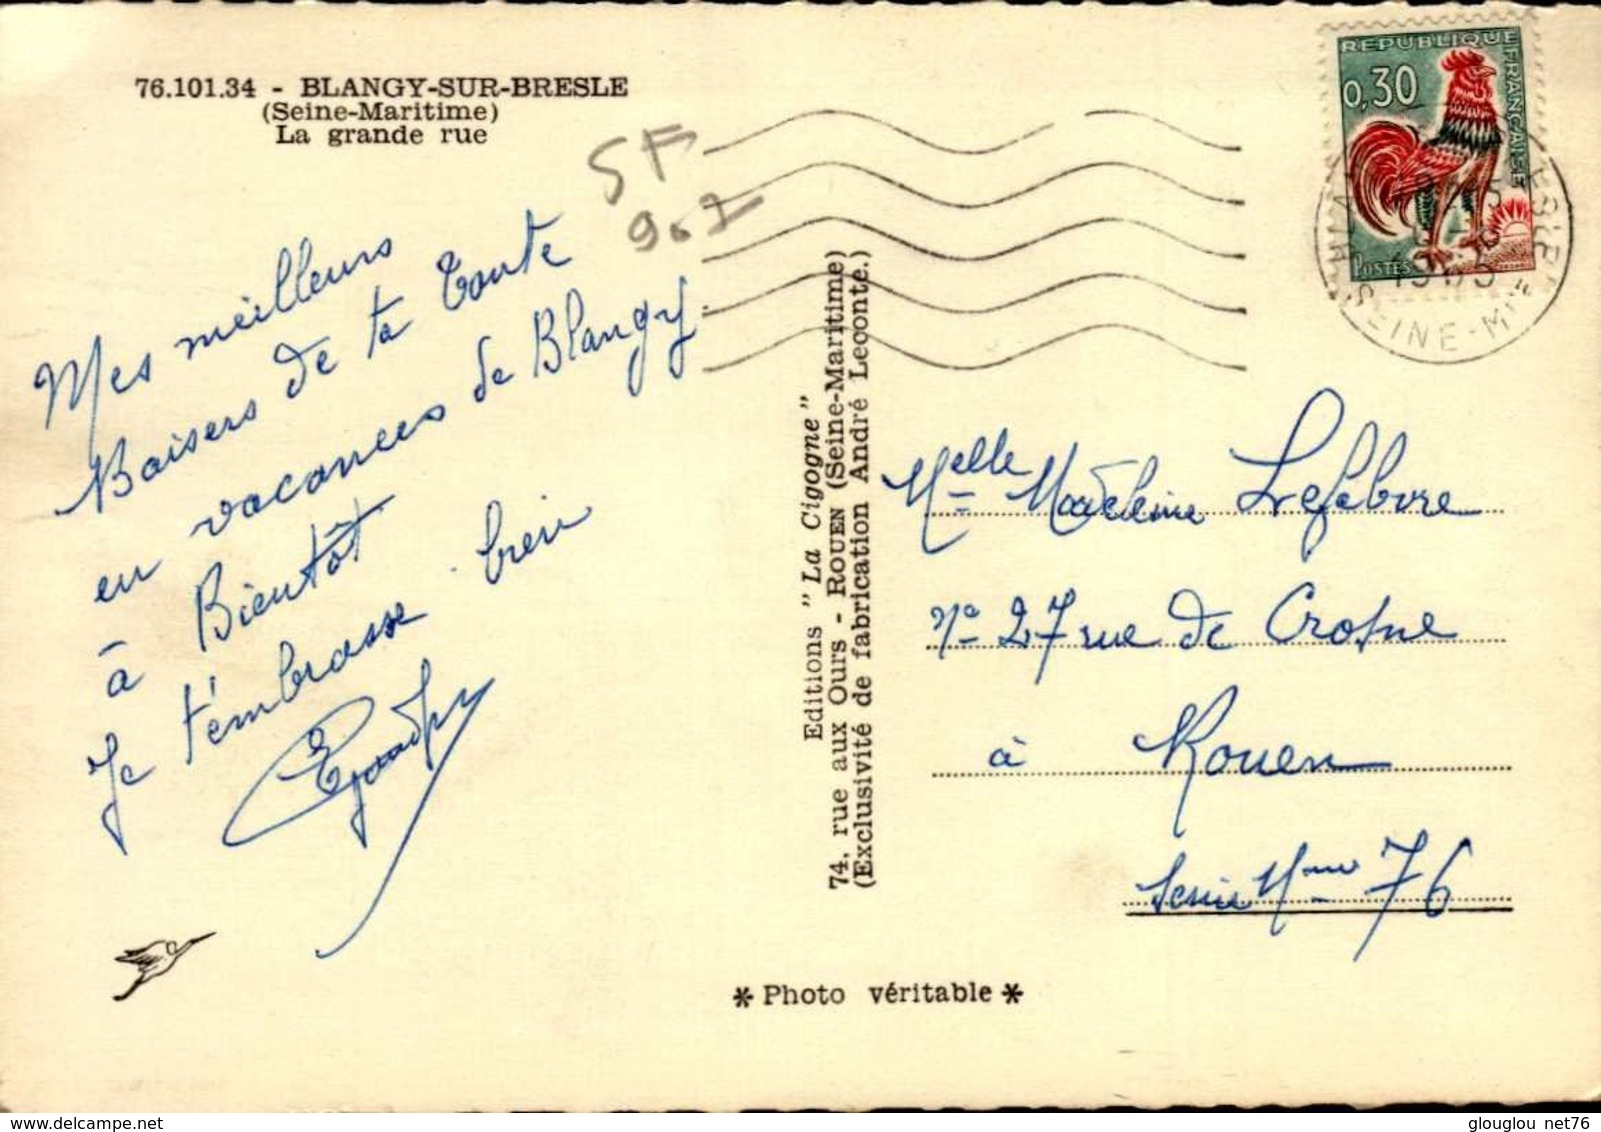 76.101.34 - BLANGY-SUR-BRESLE
(Seine-Maritime)
La grande rue
SF
Mes meilleurs
Baisers de ta Tante
en vacances de Blangy
à Bientôt
Je t'embrasse bien
Editions "La Cigogne"
74, rue aux Ours - ROUEN (Seine-Maritime)
(Exclusivité de fabrication André Leconte.)
* Photo véritable *
REPUBLIQUE FRANÇAISE
0,30
POSTES
SEINE-Mme
Melle Madeleine Lefebvre
No 27 rue de Crosne
à Rouen
Seine Mme 76
glouglou net76